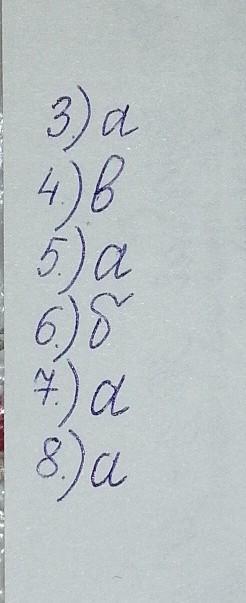 3.) а
4.) в
5.) а
6.) б
7.) а
8.) а